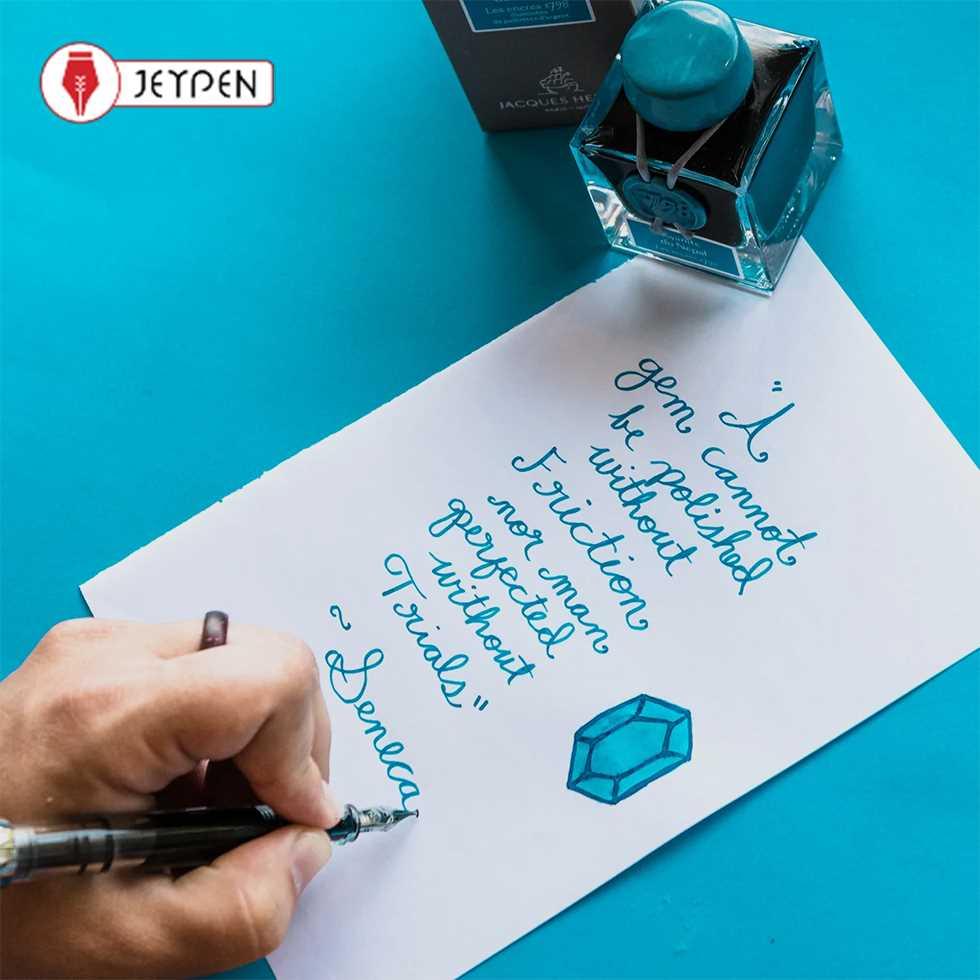 JEYPEN
Les encres 1798
JACQUES HE
1798
du Népal
"A
gem cannot
be polished
without
Friction
nor man
perfected
without
Trials"
~ Seneca